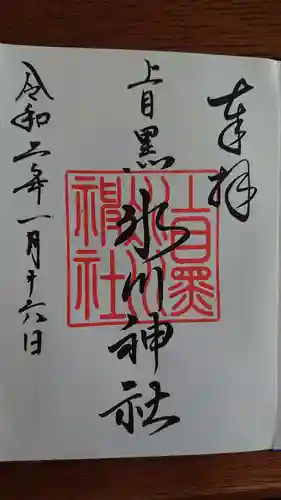 奉拝
上目黒氷川神社
上目黒氷川神社
令和二年一月十六日